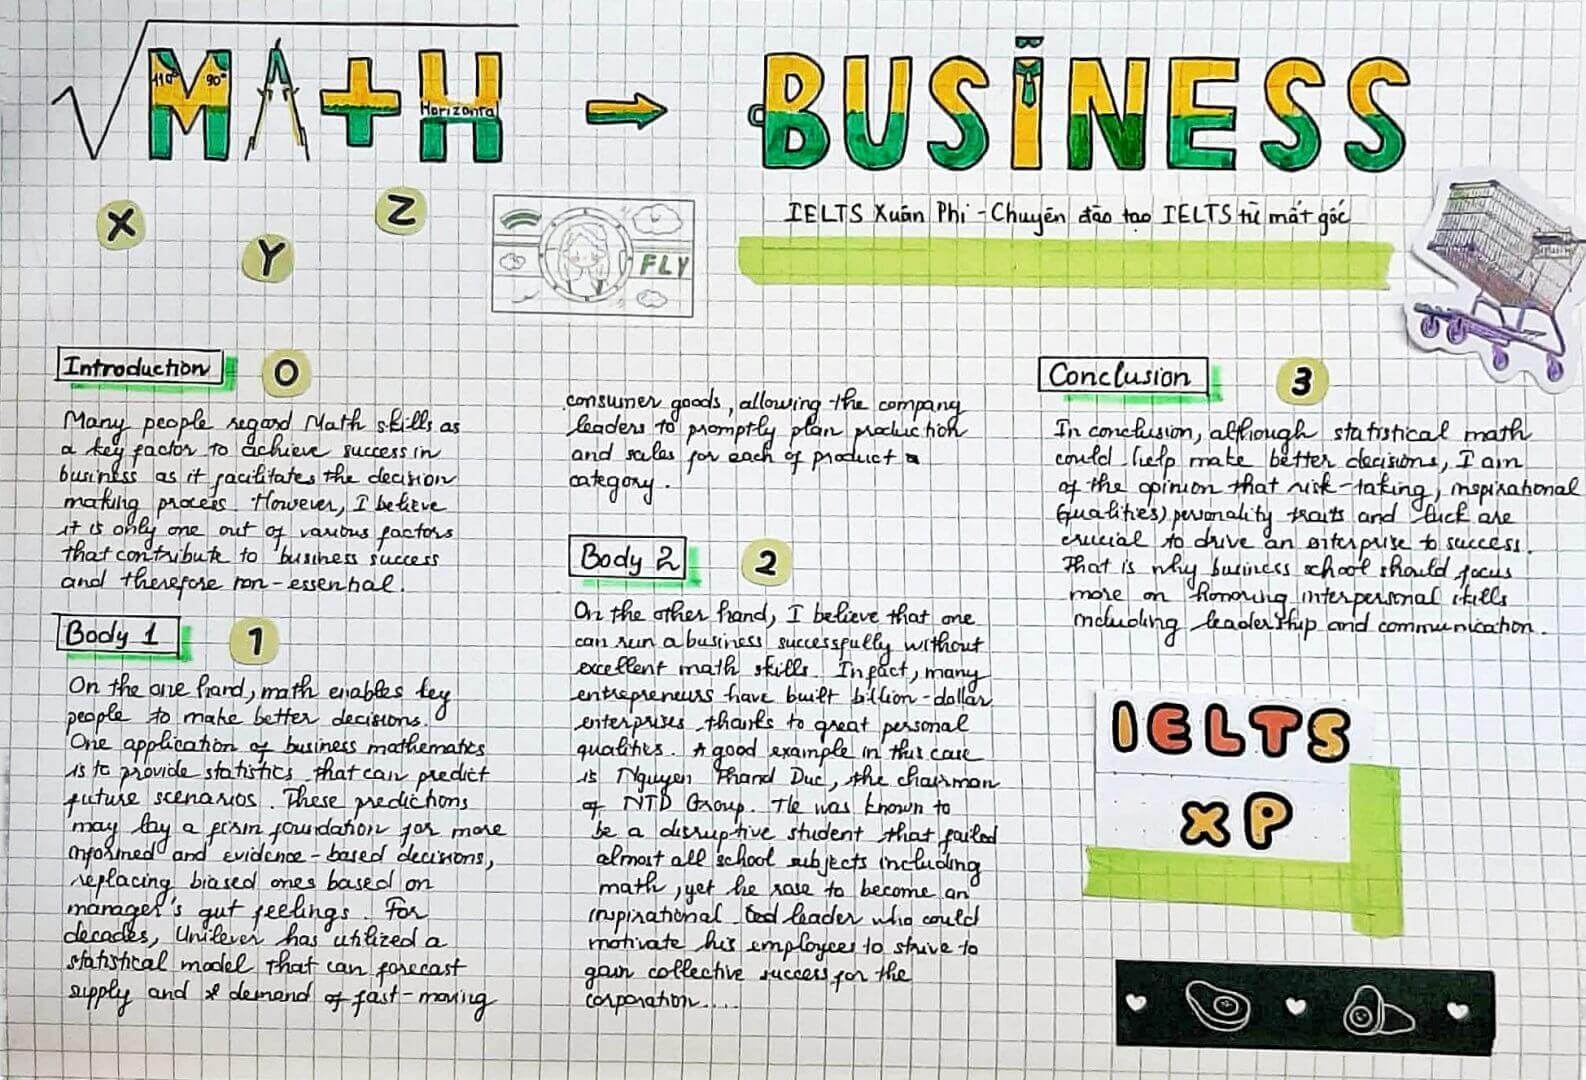 MATH → BUSINESS
110° 90°
Horizontal
X
Y
Z
FLY
IELTS Xuân Phi - Chuyên đào tạo IELTS từ mất gốc
Introduction 0
Many people regard Math skills as
a key factor to achieve success in
business as it facilitates the decision
making process. However, I believe
it is only one out of various factors
that contribute to business success
and therefore non-essential.
Body 1 1
On the one hand, math enables key
people to make better decisions.
One application of business mathematics
is to provide statistics that can predict
future scenarios. These predictions
may lay a firm foundation for more
informed and evidence-based decisions,
replacing biased ones based on
manager's gut feelings. For
decades, Unilever has utilized a
statistical model that can forecast
supply and demand of fast-moving
consumer goods, allowing the company
leaders to promptly plan production
and sales for each of product
category.
Body 2 2
On the other hand, I believe that one
can run a business successfully without
excellent math skills. In fact, many
entrepreneurs have built billion-dollar
enterprises thanks to great personal
qualities. A good example in this case
is Nguyen Thand Duc, the chairman
of NTD Group. He was known to
be a disruptive student that failed
almost all school subjects including
math, yet he rose to become an
inspirational leader who could
motivate his employees to strive to
gain collective success for the
corporation....
Conclusion 3
In conclusion, although statistical math
could help make better decisions, I am
of the opinion that risk-taking, inspirational
(qualities) personality traits and luck are
crucial to drive an enterprise to success.
That is why business school should focus
more on honoring interpersonal skills
including leadership and communication.
IELTS
XP